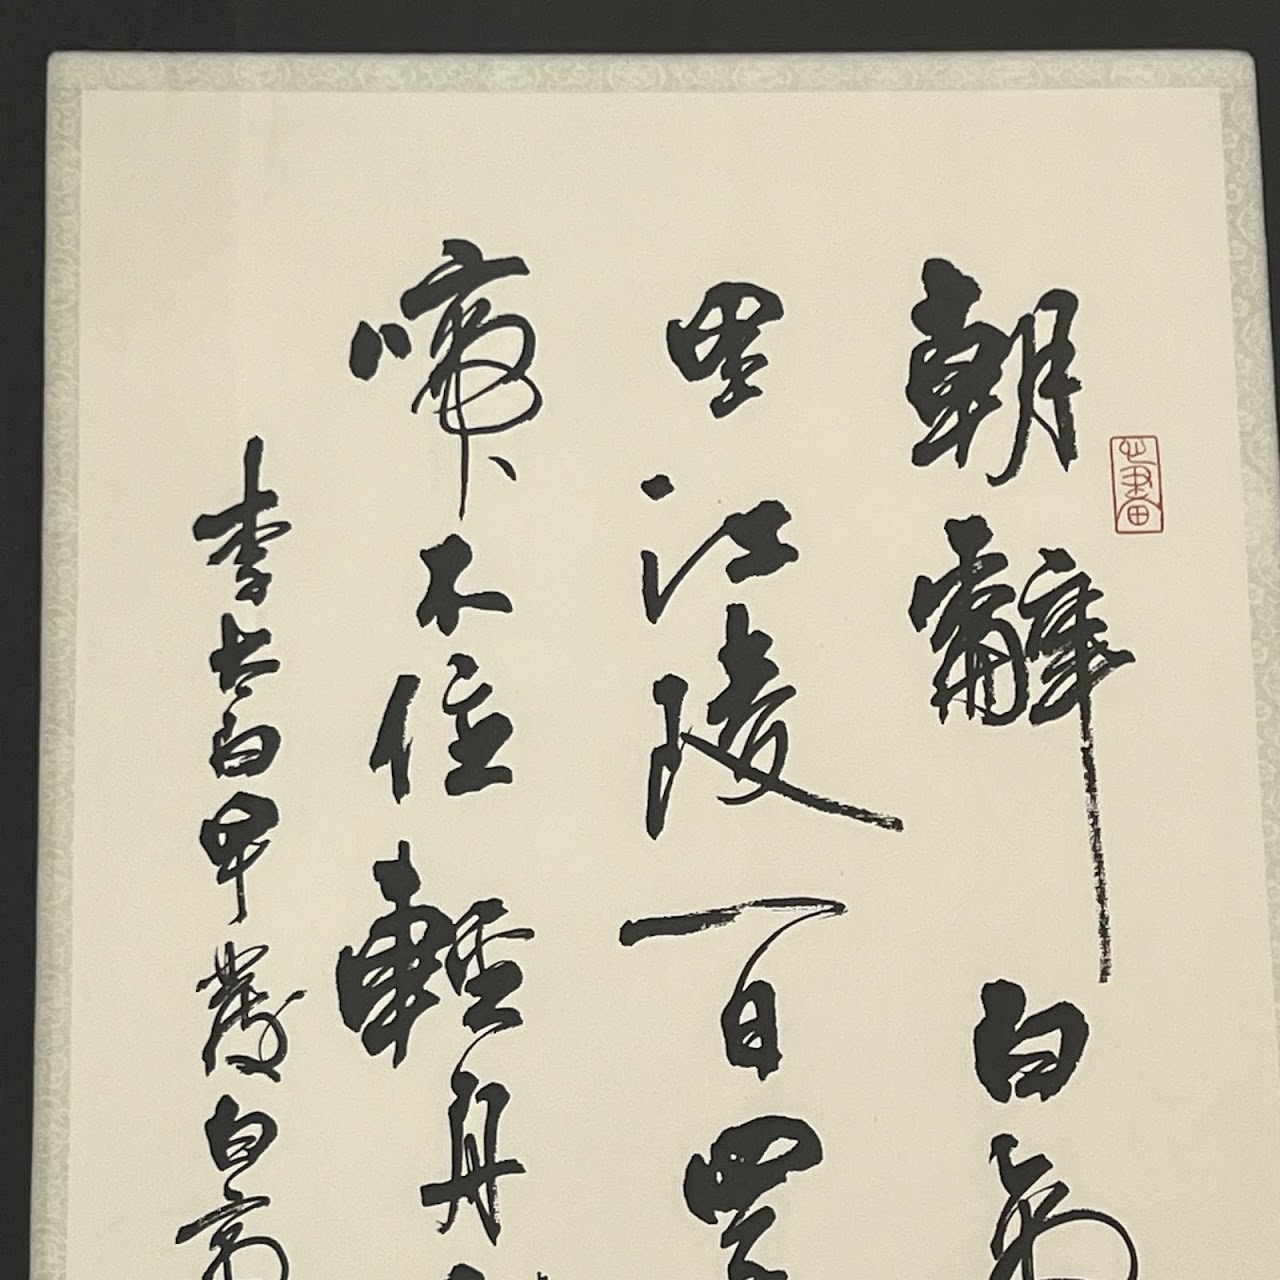 心畫
朝辭白帝
里江陵一日還
啼不住輕舟
李太白早發白帝